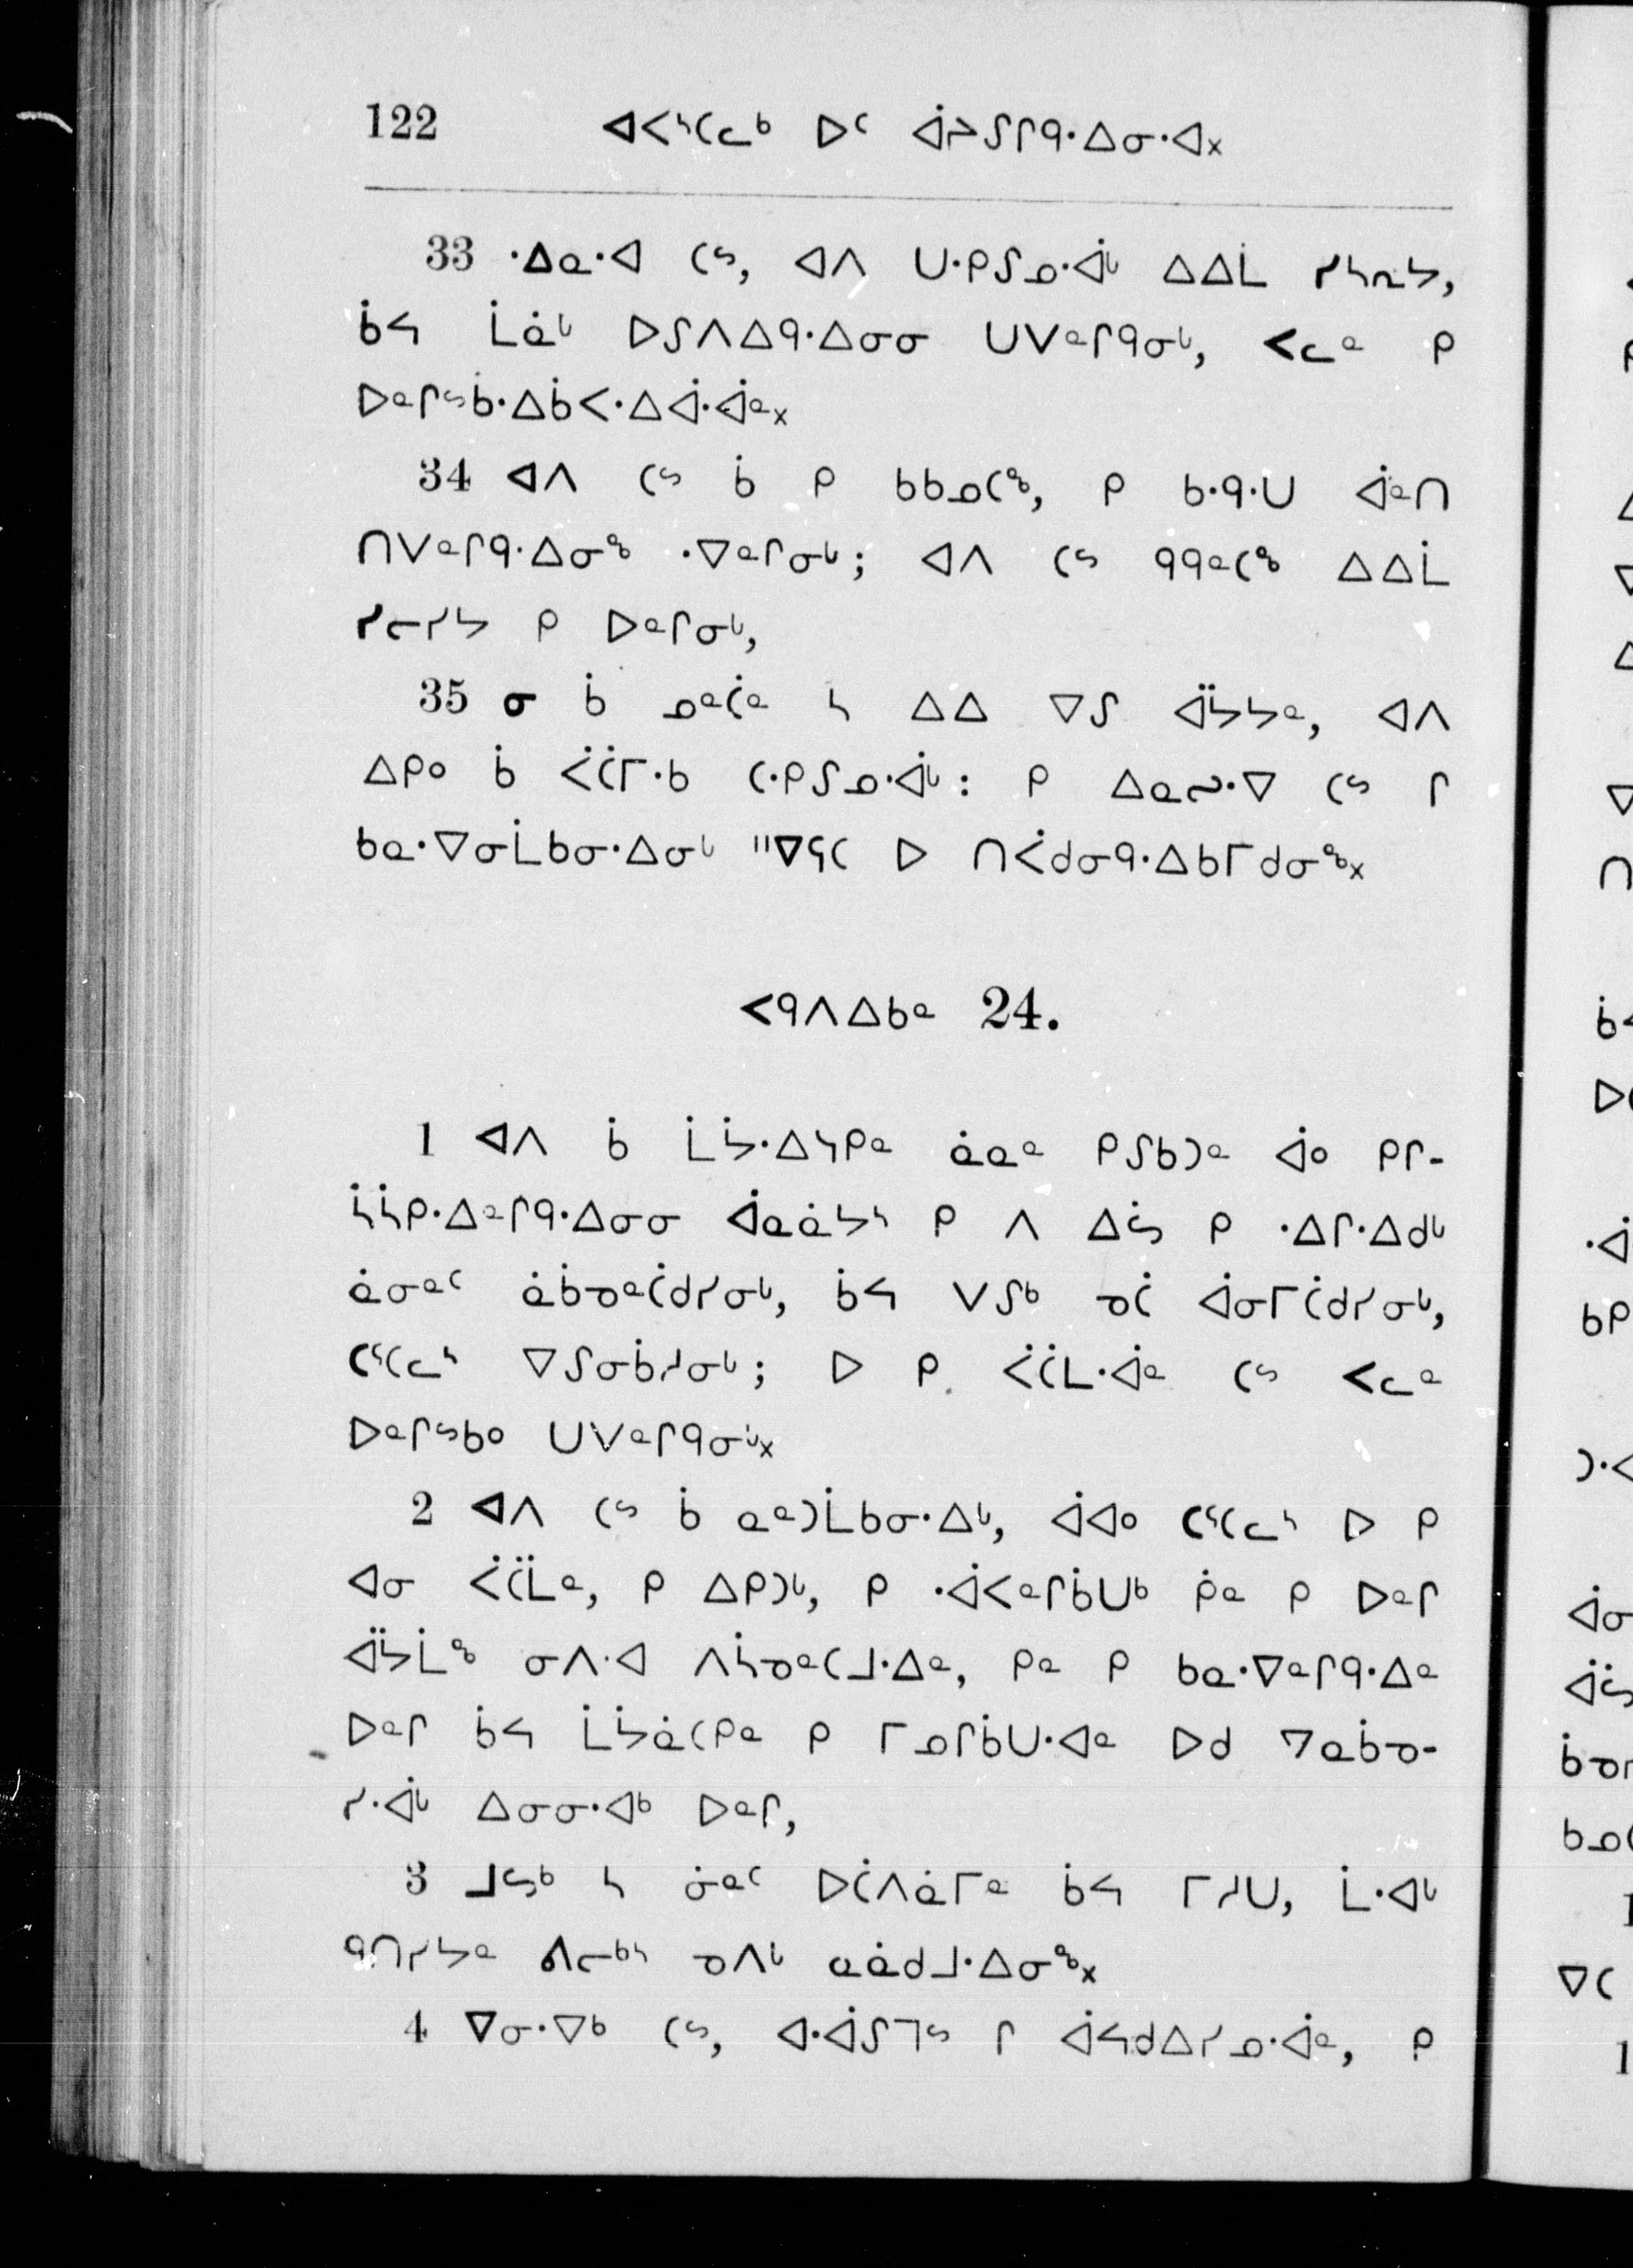 122 ᐊᐸᔅᑕᓚᒃ ᐅᑦ ᐋᔨᔑᒋᑫᐧᐃᓂᐧᐊ᙮
33 ᐧᐃᓇᐧᐊ ᑕᔥ, ᐊᐱ ᑌᐧᑭᔑᓄᐧᐋᒡ ᐃᐃᒫ ᓯᓴᕆᔭ,
ᑳᔦ ᒫᓈᒡ ᐅᔑᐱᐃᑫᐧᐃᓂᓂ ᑌᐯᓐᒋᑫᓂᒡ, ᐸᓚᓐ ᑭ
ᐅᓐᒋᔥᑳᐧᐃᑳᐸᐧᐃᐋᐧᐋᓐ᙮
34 ᐊᐱ ᑕᔥ ᑳ ᑭ ᑲᑲᓄᑕᒃ, ᑭ ᑲᐧᑫᐧᑌ ᐋᓐᑎ
ᑎᐯᓐᒋᑫᐧᐃᓂᒃ ᐧᐁᓐᒋᓂᒡ; ᐊᐱ ᑕᔥ ᑫᑫᓐᑕᒃ ᐃᐃᒫ
ᓯᓕᓯᔭ ᑭ ᐅᓐᒋᓂᒡ,
35 ᓂ ᑳ ᓄᓐᑖᓐ ᓴ ᐃᐃ ᐁᔑ ᐋᔭᔭᓐ, ᐊᐱ
ᐃᑭᐤ ᑳ ᐹᑖᒥᐧᑲ ᑕᐧᑭᔑᓄᐧᐋᒡ: ᑭ ᐃᓇᔓᐧᐁ ᑕᔥ ᒋ
ᑲᓇᐧᐁᓂᒫᑲᓂᐧᐃᓂᒡ ᐦᐁᕋᑕ ᐅ ᑎᐹᑯᓂᑫᐧᐃᑲᒥᑯᓂᒃ᙮
ᐸᑫᐱᐃᑲᓐ 24.
1 ᐊᐱ ᑳ ᒫᔮᐧᐃᓴᑭᓐ ᓈᓇᓐ ᑭᔑᑲᑐᓐ ᐋᐤ ᑭᒋ-
ᓵᓵᑭᐧᐃᓐᒋᑫᐧᐃᓂᓂ ᐋᓇᓈᔭᔅ ᑭ ᐱ ᐃᔖ ᑭ ᐧᐃᒋᐧᐃᑯᒡ
ᓈᓂᓐᑦ ᓈᑳᓀᓐᑖᑯᓯᓂᒡ, ᑳᔦ ᐯᔑᒃ ᓀᑖ ᐋᓂᒥᑖᑯᓯᓂᒡ,
ᑕᕐᑕᓚᔅ ᐁᔑᓂᑳᓱᓂᒡ; ᐅ ᑭ ᐹᑖᒪᐧᐋᓐ ᑕᔥ ᐸᓚᓐ
ᐅᓐᒋᔥᑲᐤ ᑌᐯᓐᒋᑫᓂᒡ᙮
2 ᐊᐱ ᑕᔥ ᑳ ᓇᓐᑐᒫᑲᓂᐧᐃᒡ, ᐋᐊᐤ ᑕᕐᑕᓚᔅ ᐅ ᑭ
ᐊᓂ ᐹᑖᒫᓐ, ᑭ ᐃᑭᑐᒡ, ᑭ ᐧᐋᐸᓐᒋᑳᑌᒃ ᑮᓐ ᑭ ᐅᓐᒋ
ᐋᔮᒫᒃ ᓂᐱᐧᐊ ᐱᓵᓀᓐᑕᒧᐧᐃᓐ, ᑭᓐ ᑭ ᑲᓇᐧᐁᓐᒋᑫᐧᐃᓐ
ᐅᓐᒋ ᑳᔦ ᒫᔮᓈᑕᑭᓐ ᑭ ᒥᓄᒋᑳᑌᐧᐊᓐ ᐅᑯ ᒉᓇᑳᓀ-
ᓯᐧᐋᒡ ᐃᓂᓂᐧᐊᒃ ᐅᓐᒋ,
3 ᒧᔕᒃ ᓴ ᓃᓐᑦ ᐅᑖᐱᓈᒥᓐ ᑳᔦ ᒥᓱᑌ, ᒫᐧᐊᒡ
ᑫᑎᓯᔭᓐ ᕕᓕᒃᔅ ᓀᐱᒡ ᓇᓈᑯᒧᐧᐃᓂᒃ᙮
4 ᐁᓂᐧᐁᒃ ᑕᔥ, ᐊᐧᐋᔑᒣᔥ ᒋ ᐋᔦᑯᐃᓯᓄᐧᐋᓐ, ᑭ